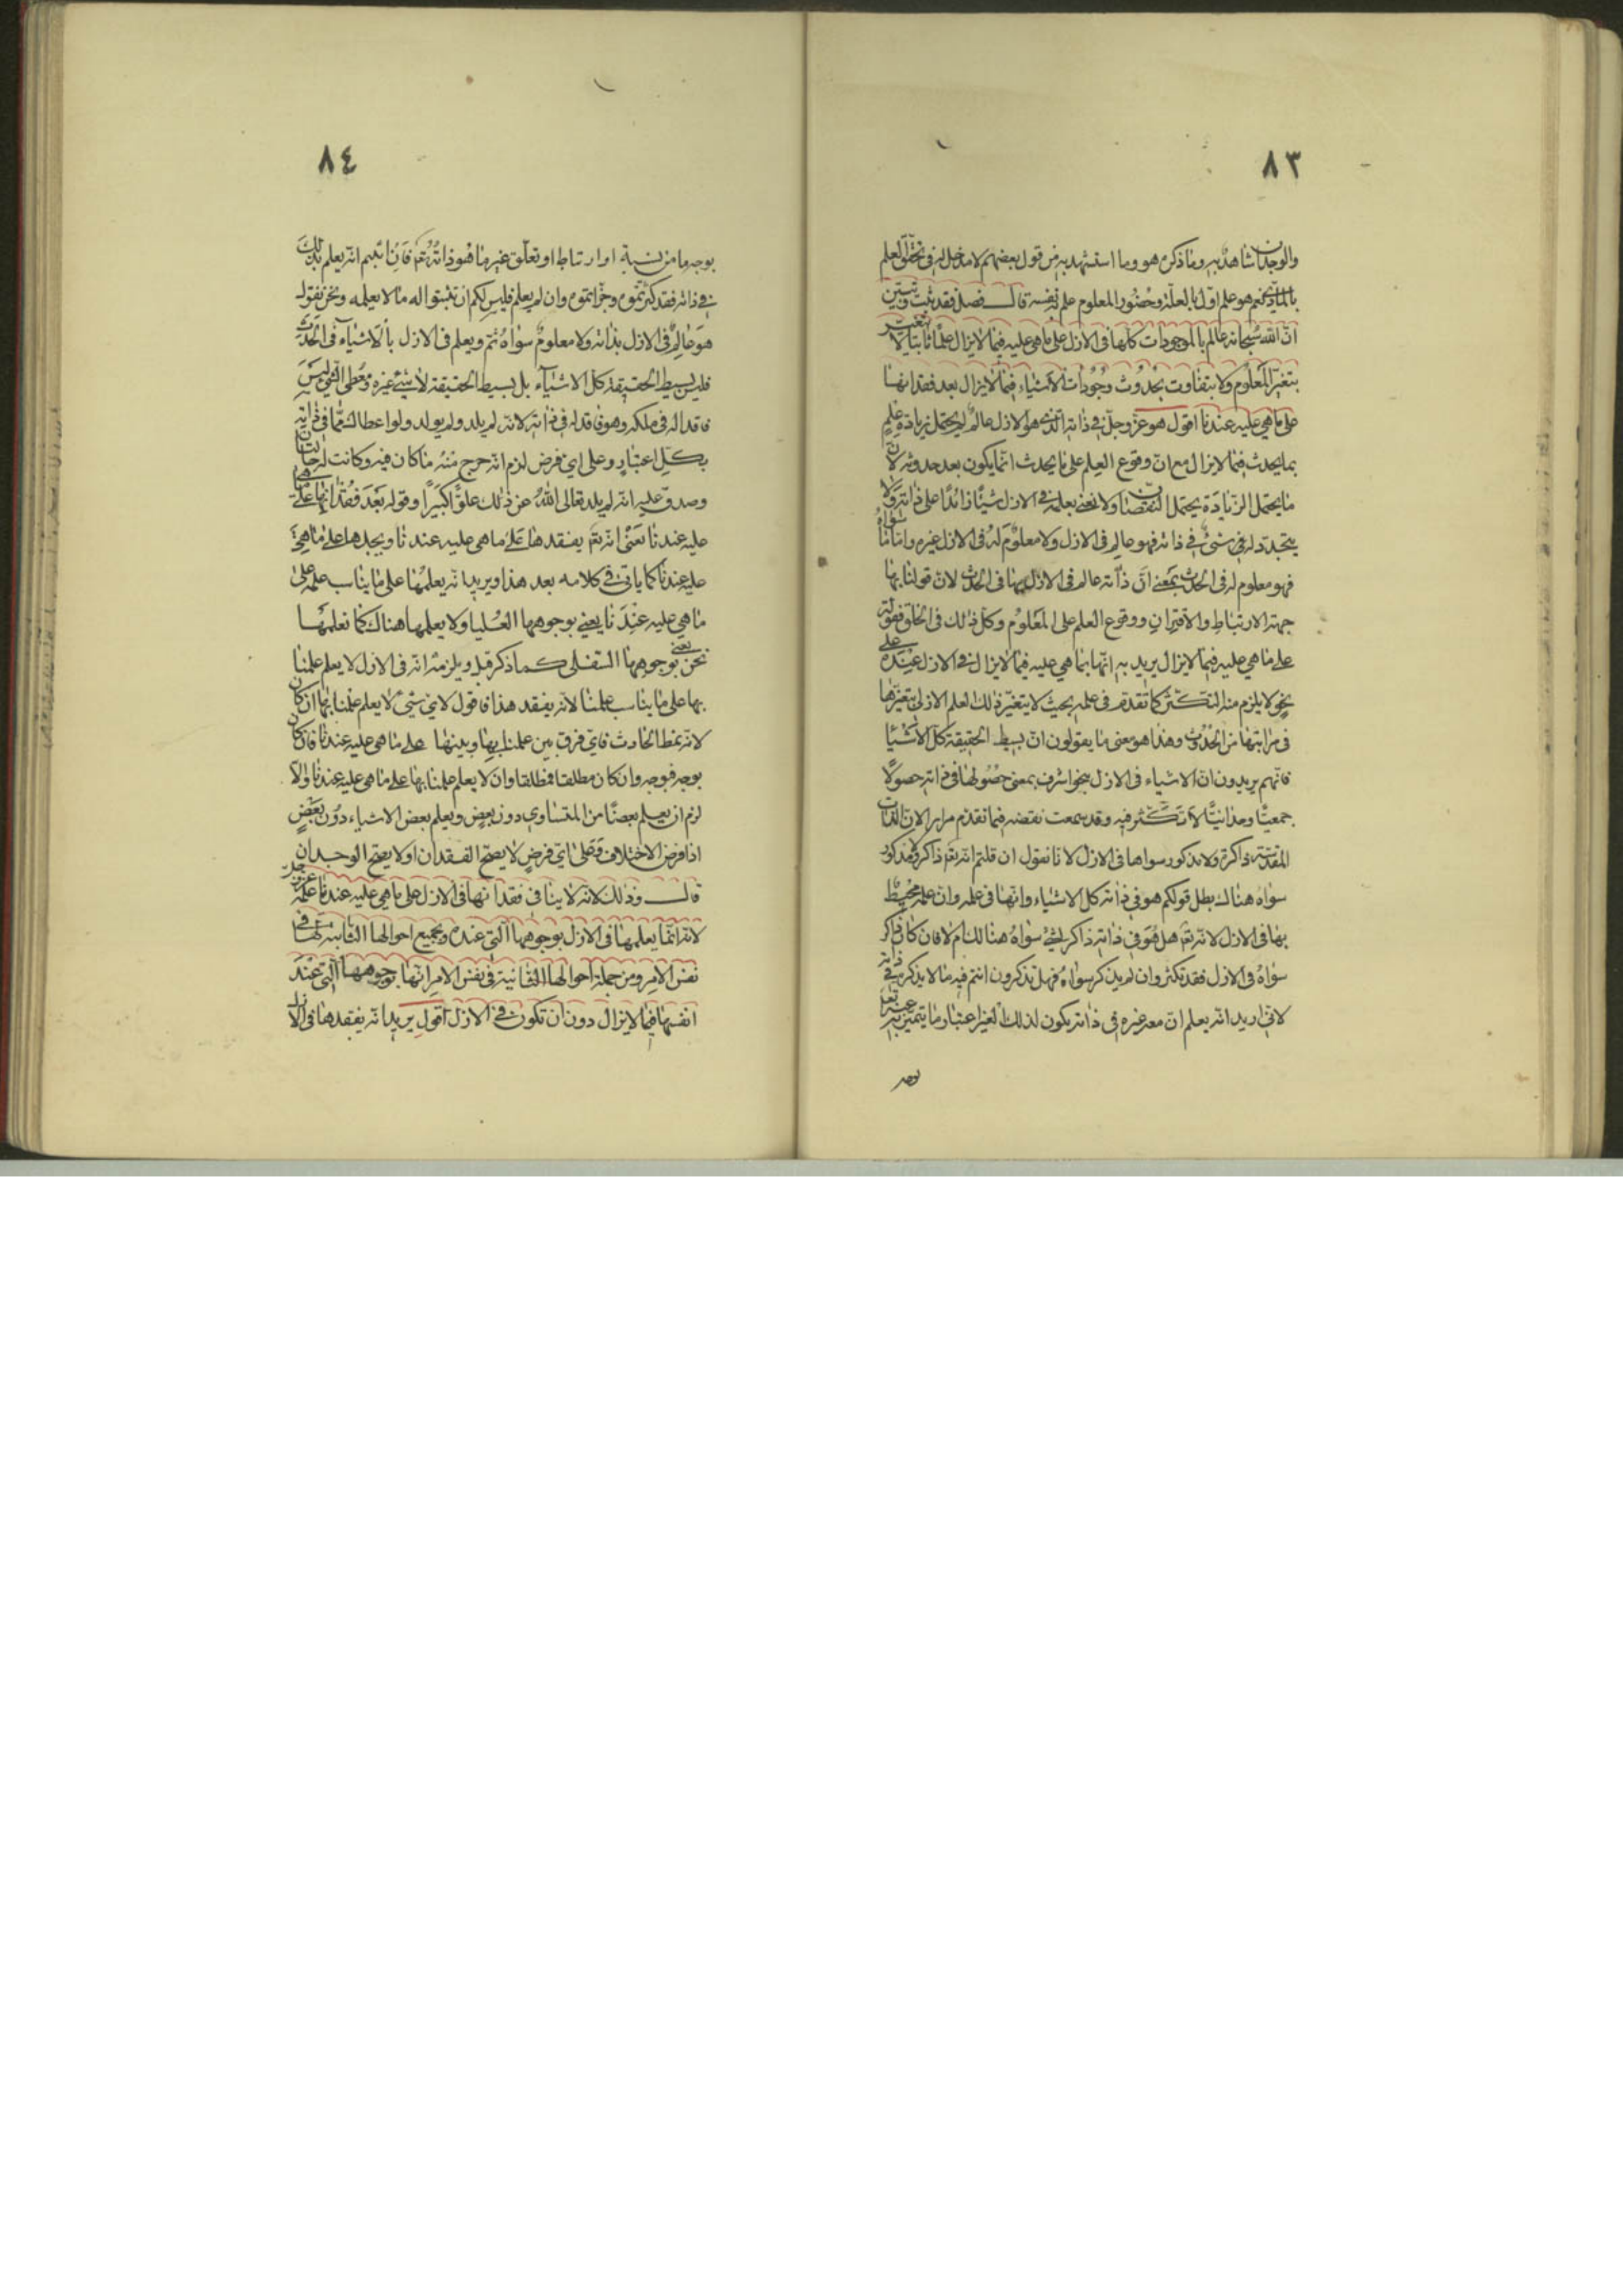 ٨٣
والوجدان شاهد به وما ذكره هو وما استشهد به من قول بعضهم لا مدخل له فى تحقّق العلم
بالمادّيّة نعم هو علم اوّل بالعلّة وحضور المعلوم علم نفسه قال فصل فقد ثبت وتبيّن
انّ الله سُبحانه عالم بالموجودات كلّها فى الازل على ما هى عليه فيما لا يزال علمًا ثابتا لا يتغيّر
بتغيّر المعلوم ولا يتفاوت بحدُوث وجُودات الاشياء فيما لا يزال بعد فقدانها
على ما هي عليه عندنا اقول هو عزّ وجلّ في ذاته الّذى هو الازل عالم لا يحتمل زيادة علم
بما يحدث فيما لا يزال مع انّ وقوع العِلم على ما يحدث انّما يكون بعد حدوثه لانّ
ما يحتمل الزّيادة يحتمل النّقصان ولا نعني بعلمه في الازل شيئًا زائدًا على ذاته ولا
يتجدّد له في شيء في ذاته فهو عالم فى الازل ولا معلوم له فى الازل غيره وامّا ما سواه
فهو معلوم له فى الحدث بمعنى انّ ذاته عالم فى الازل بها فى الحدث لانّ قولنا بها
جهة الارتباط والاقتران ووقوع العلم على المعلوم وكلّ ذلك فى الخلق فقوله
على ما هي عليه فيما لا يزال يريد به انّها بما هي عليه فيما لا يزال في الازل عنده على
نحو لا يلزم منه التكثّر كما تقدّم فى علمه بحيث لا يتغيّر ذلك العلم الازلى بتغيّرها
فى مراتبها من الحدُوث وهذا هو معنى ما يقولون انّ بسيط الحقيقة كلّ الاشيا
فانّهم يريدون انّ الاشياء فى الازل بنحو اشرف بمعنى حصُولها فى ذاته حصولًا
جمعيًّا وحدانيًّا لا تكثّر فيه وقد سمعت نقضه فيما تقدّم مرارا لانّ الذات
المقدّسة ذاكرة ولا مذكور سواها فى الازل لانا نقول ان قلتم انّه تعم ذاكر ومذكور
سواهُ هناك بطل قولكم هو في ذاته كلّ الاشياء وانّها فى علمه وانّ علمه محيط
بها فى الازل لانّه تعم هل هُو في ذاته ذاكر لشئ سواهُ هنالك ام لا فان كان ذاكر
سواهُ فى الازل فقد تكثّر وان لم يذكر سواهُ فهل تذكرون انتم فيه ما لا يذكره في ذاته
لانّى اريد انّه يعلم انّ معه غيره في ذاته يكون لذلك الغير اعتبار وما يتميّز به عنه تعم
بوجه
٨٤
بوجه ما من نسبة او ارتباط او تعلّق غير ما هُو ذاته تعم فان اثبتم انّه يعلم ذلك
في ذاته فقد كثّرتموه وجزّاتموه وان لم يعلم فليس لكم ان تثبتوا له ما لا يعلمه ونحن نقول
هو عالم فى الازل بذاته ولا معلوم سواهُ ثم ويعلم فى الازل بالاشياء فى الحدث
فليس بسيط الحقيقة كلّ الاشياء بل بسيط الحقيقة لا شيئ غيره ومعطى الشئ ليس
فاقدا له فى ملكه وهو فاقد له فى ذاته لانّه لم يلد ولم يولد ولو اعطا الشئ ممّا فى ذاته
بكلّ اعتبارٍ وعلى اي فرض لزم انّه خرج منهُ ما كان فيه وكانت له حالتان
وصدق عليه انّه لم يلد تعالى الله عن ذلك علوًّا كبيرًا وقوله بعد فقدانها على ما هى
عليه عندنا يعنى انّه تعم يفقدها على ما هى عليه عندنا ويجدها على ما هى
عليه عندنا كما ياتى في كلامه بعد هذا ويريد انّه يعلمها على ما يناسب علمه على
ما هي عليه عندنا يعنى بوجوهها العُليا ولا يعلمها هناك كما نعلمها
نحن يعنى بوجوهها السّفلى كما ذكر قبل ويلزمه انّه فى الازل لا يعلم علمنا
بها على ما يناسب علمنا لانّه يفقد هذا فاقول لاي شئ لا يعلم علمنا بها ان كان
لانّه نمط الحادث فاي فرق بين علمنا بها وبينها على ما هى عليه عندنا فان كان
بوجه فبوجه وان كان مطلقا فمطلقا وان لا يعلم علمنا بها على ما هى عليه عندنا والّا
لزم ان يعلم بعضًا من المتساوي دون بعض ويعلم بعض الاشياء دون بعضٍ
اذا فرض الاختلاف وعلى اي فرض لا يصحّ الفقدان او لا يصحّ الوجدان
قال وذلك لانّه لا ينافي فقدانها فى الازل على ما هي عليه عندنا علمه عزّ وجلّ
لانّه انّما يعلمها فى الازل بوجوهها الّتى عنده وبجميع احوالها الثّابتة لها فى
نفس الامر ومن جملة احوالها الثّابتة فى نفس الامر انّها بوجوهها الّتى عند
انفسها فيما لا يزال دون ان تكون في الازل اقول يريد انّه يفقدها فى الازل